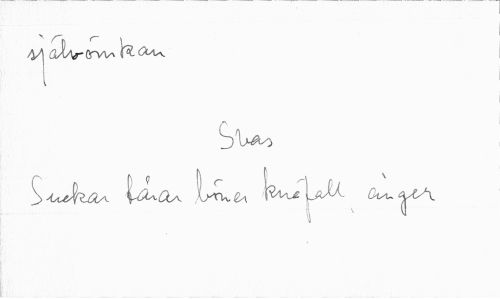 självömkan
Svas
Suckar tårar böner knäfall, ånger